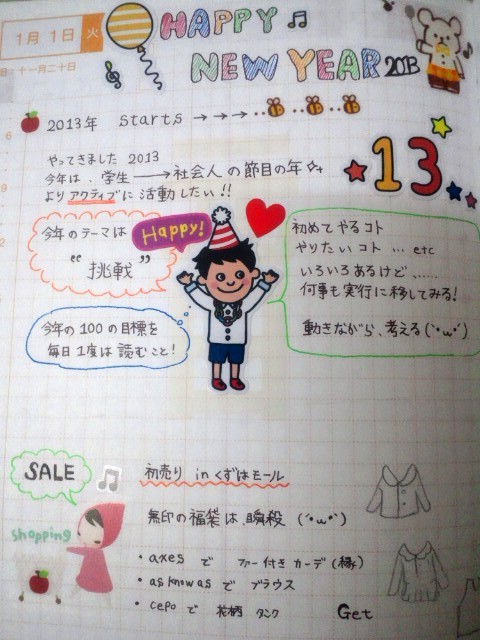 1月 1日 火
旧：十一月二十日
HAPPY
NEW YEAR 2013
2013年 starts → → →
6
やってきました 2013
今年は、学生 → 社会人 の節目の年
よりアクティブに活動したい!!
9
13
2
今年のテーマは
Happy!
“挑戦”
初めてやるコト
やりたいコト … etc
いろいろあるけど、……
何事も実行に移してみる!
動きながら、考える(`・ω・´)
今年の100の目標を
毎日1度は読むこと!
SALE
初売り in くずはモール
Shopping
無印の福袋は、瞬殺 (´・ω・`)
・axes で ファー付きカーデ(緑)
・as know as で ブラウス
・cepo で 花柄 タンク Get